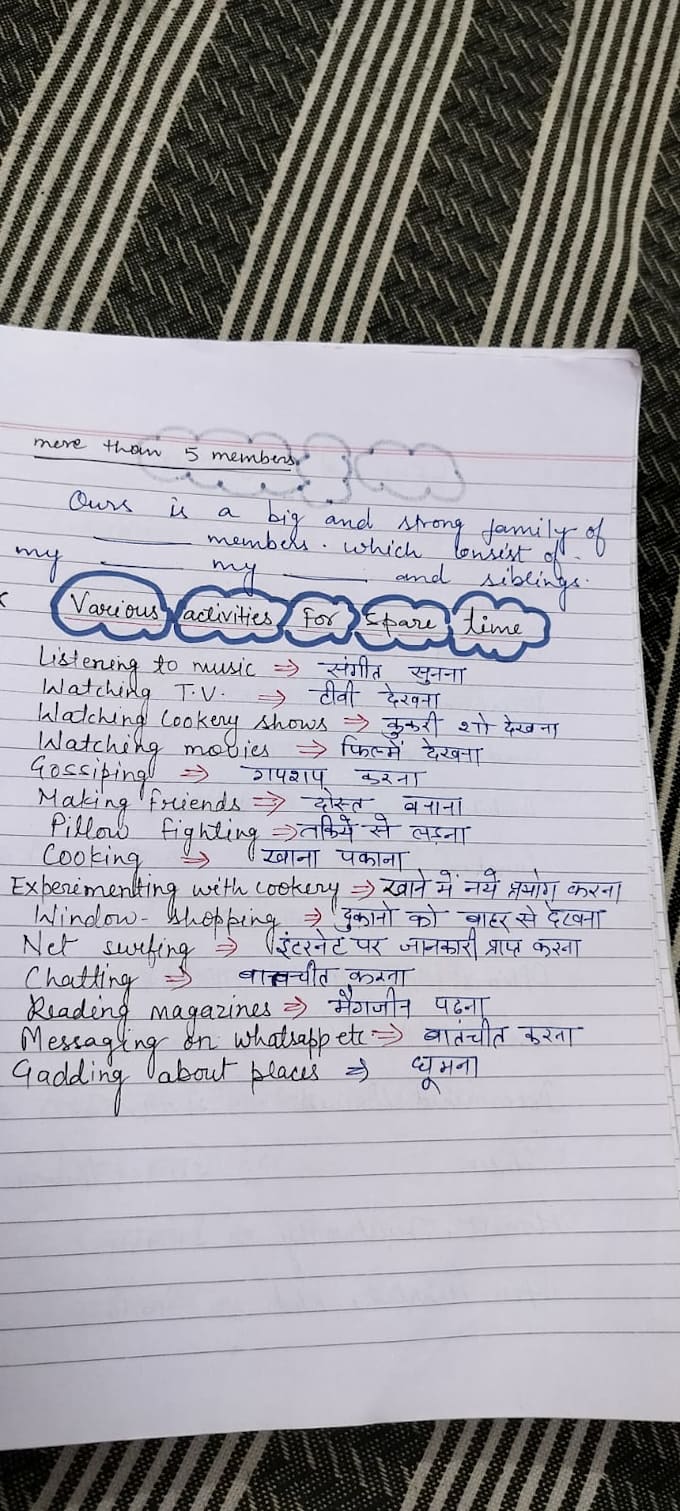 more than 5 members.
Ours is a big and strong family of
______ members. which consist of
my ______ my ______ and siblings.
Various activities For Spare time
Listening to music ⇒ संगीत सुनना
Watching T.V. ⇒ टीवी देखना
Watching Cookery shows ⇒ कुकरी शो देखना
Watching movies ⇒ फिल्में देखना
Gossiping ⇒ गपशप करना
Making friends ⇒ दोस्त बनाना
Pillow fighting ⇒ तकिये से लड़ना
Cooking ⇒ खाना पकाना
Experimenting with cookery ⇒ खाने में नये प्रयोग करना
Window-shopping ⇒ दुकानो को बाहर से देखना
Net surfing ⇒ इंटरनेट पर जानकारी प्राप्त करना
Chatting ⇒ बातचीत करना
Reading magazines ⇒ मैगजीन पढना
Messaging on whatsapp etc ⇒ बातंचीत करना
Gadding about places ⇒ घूमना